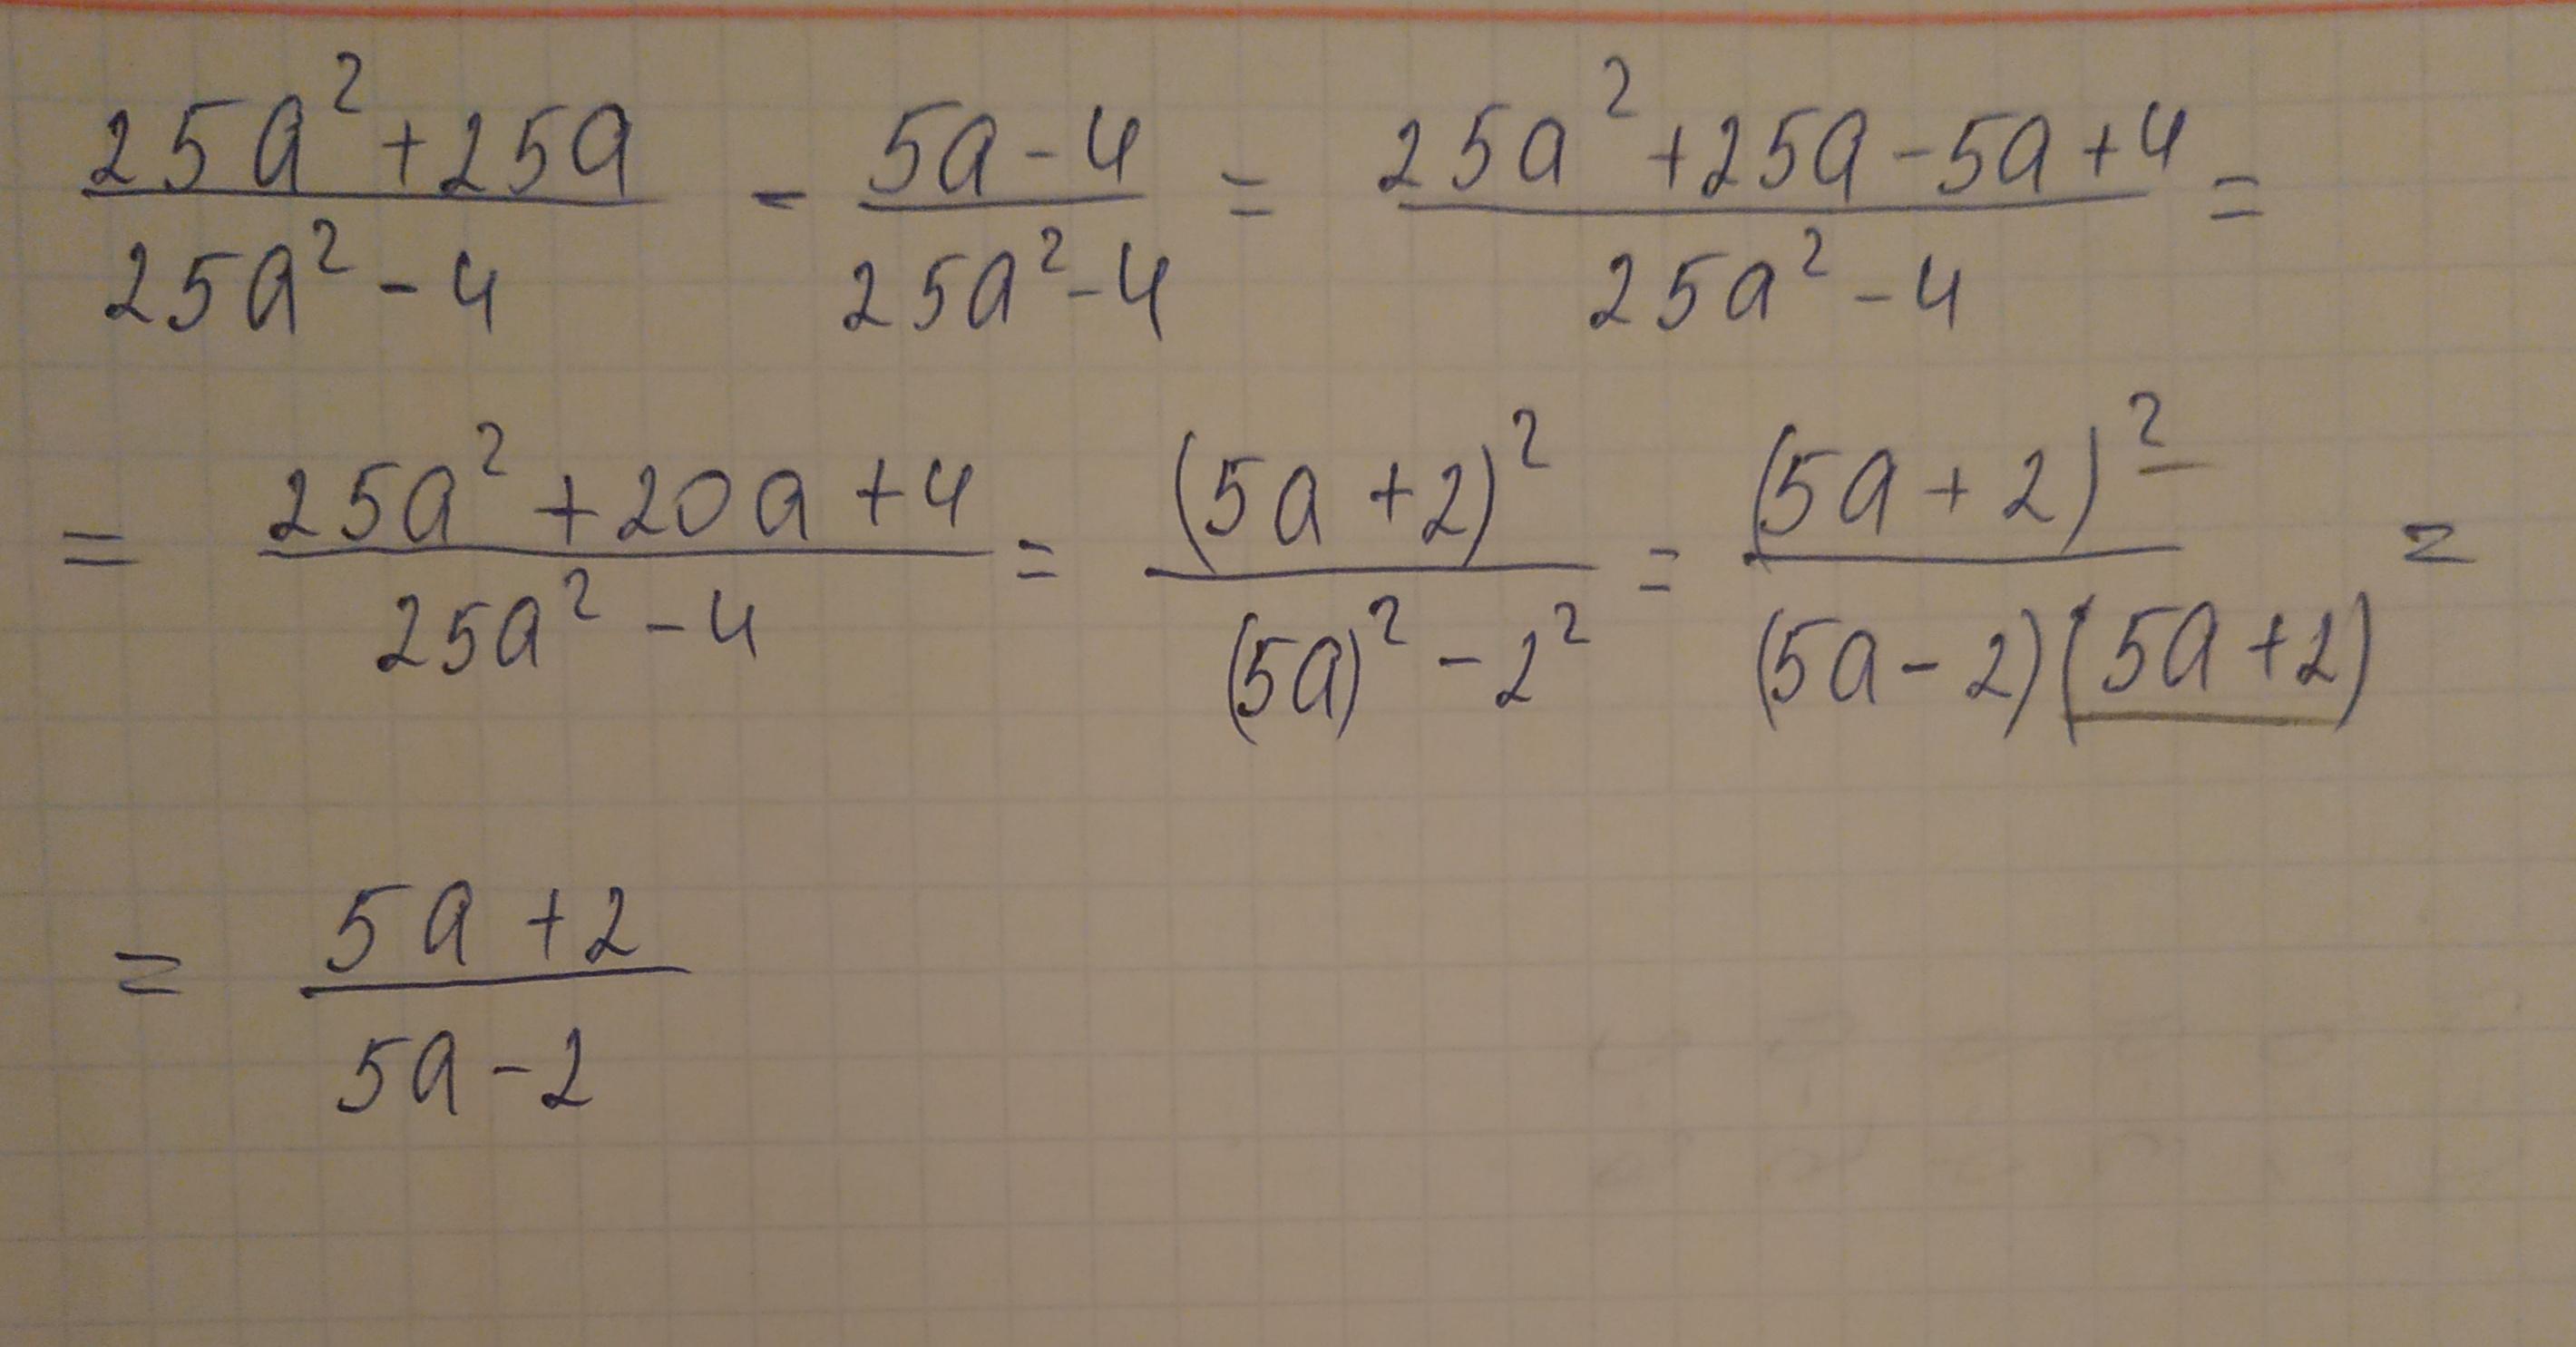 (25a² + 25a)/(25a² - 4) - (5a - 4)/(25a² - 4) = (25a² + 25a - 5a + 4)/(25a² - 4) =
= (25a² + 20a + 4)/(25a² - 4) = (5a + 2)²/((5a)² - 2²) = (5a + 2)²/((5a - 2)(5a + 2)) =
= (5a + 2)/(5a - 2)